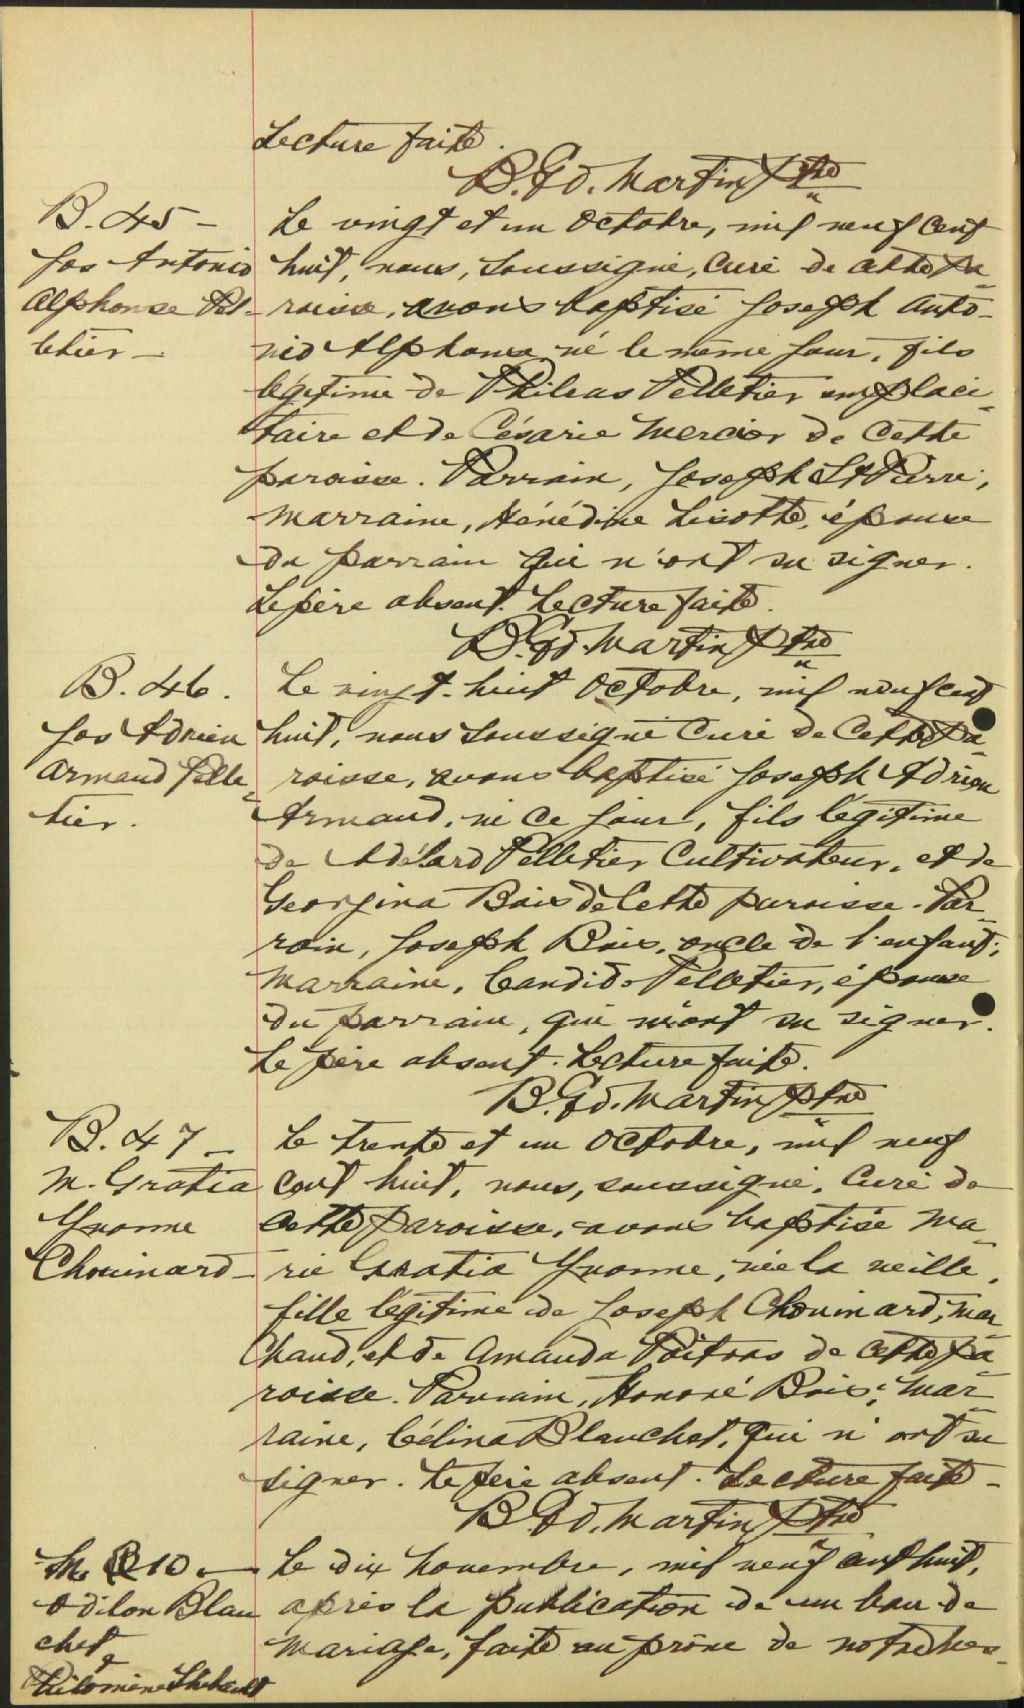 Lecture faite.
B. Ed. Martin Ptre
B. 45 —
Jos Antonio
Alphonse Pel-
letier —
Le vingt et un Octobre, mil neuf cent
huit, nous, soussigné, Curé de cette pa-
roisse, avons baptisé Joseph Anto-
nio Alphonse né le même jour, fils
légitime de Phileas Pelletier emplaci-
taire et de Césarie Mercier de cette
paroisse. Parrain, Joseph St Pierre,
Marraine, Hénédine Lizotte, épouse
du parrain qui n'ont su signer.
Le père absent. Lecture faite.
B. Ed. Martin Ptre
B. 46.
Jos Adrien
Armand Pelle-
tier.
Le vingt-huit Octobre, mil neuf cent
huit, nous soussigné Curé de Cette Pa-
roisse, avons baptisé Joseph Adrien
Armand, né ce jour, fils légitime
de Adélard Pelletier Cultivateur, et de
Georgina Bois de Cette paroisse. Par-
rain, Joseph Bois, oncle de l'enfant;
Marraine, Candide Pelletier, épouse
du parrain, qui n'ont su signer.
Le père absent. Lecture faite.
B. Ed. Martin ptre
B. 47 —
M. Gratia
Yvonne
Chouinard —
Le trente et un Octobre, mil neuf
cent huit, nous, soussigné, Curé de
cette paroisse, avons baptisé Ma-
rie Gratia Yvonne, née la veille,
fille légitime de Joseph Chouinard, mar-
chand, et de Amanda Poitras de cette pa-
roisse. Parrain, Honoré Bois; mar-
raine, Célina Blanchet, qui n'ont su
signer. Le père absent. Lecture faite —
B. Ed. Martin Ptre
M. 10 —
Odilon Blan
chet
&
Philomène Thibault
Le dix novembre, mil neuf cent huit,
après la publication de un ban de
mariage, faite au prône de notre mes-